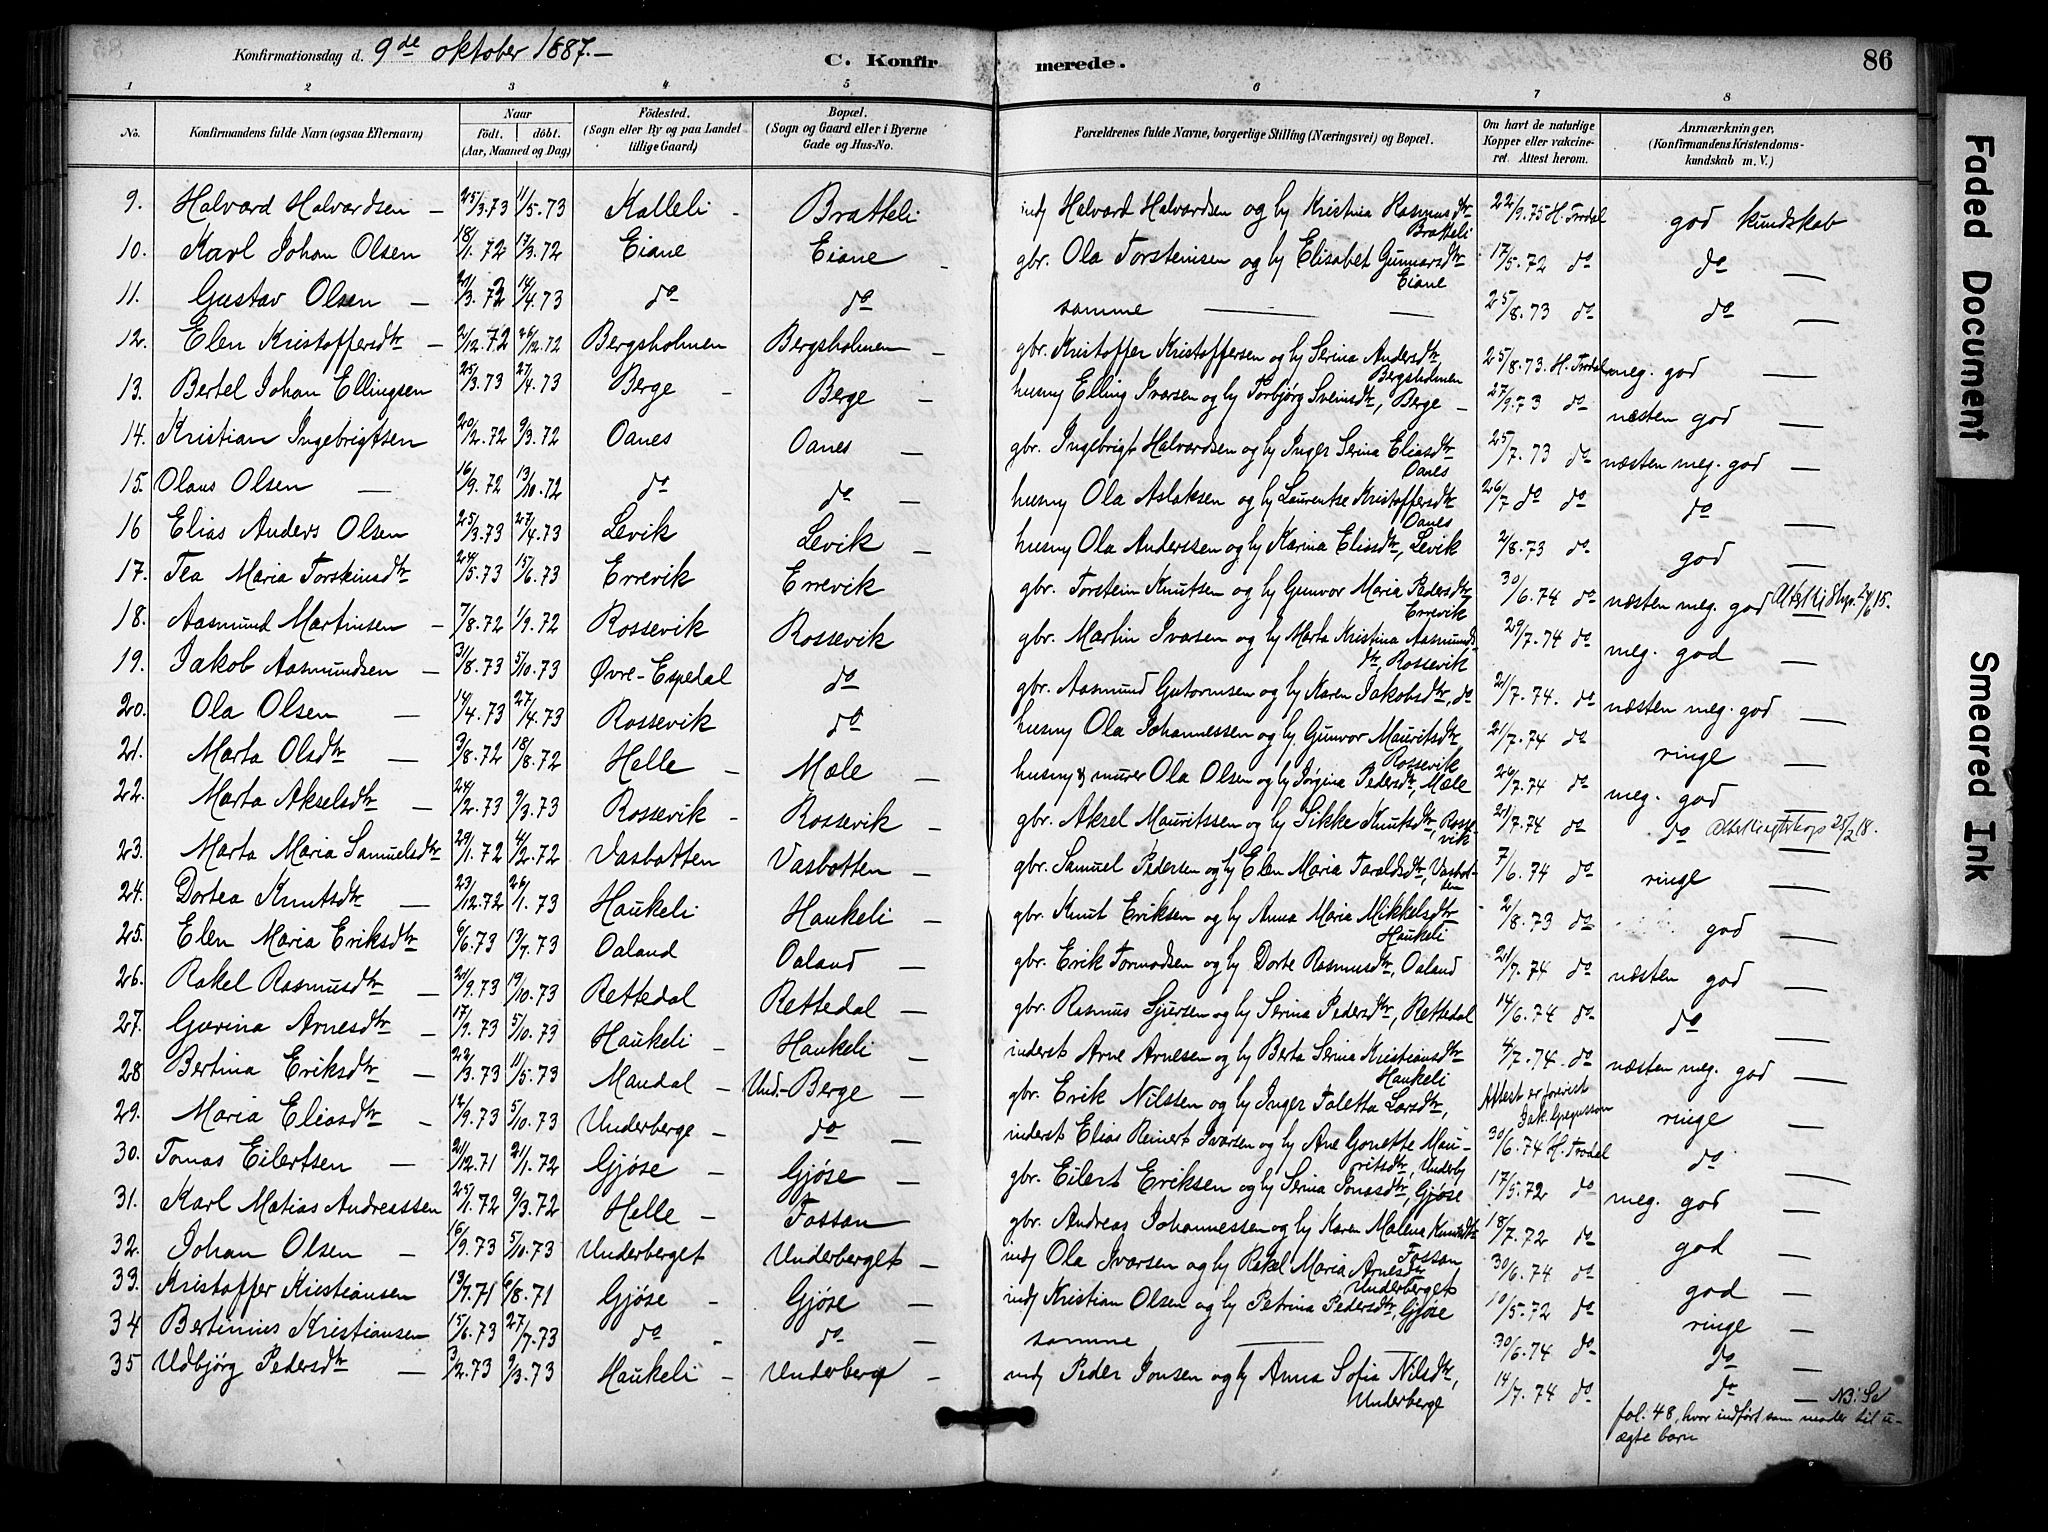 Konfirmationsdag d. 9de oktober 1887.—
C. Konfirmerede.
86
1 2 3 4 5 6 7 8
No. Konfirmandens fulde Navn (ogsaa Efternavn) Naar født. døbt. (Aar, Maaned og Dag) Fødested. (Sogn eller By og paa Landet tillige Gaard) Bopæl. (Sogn og Gaard eller i Byerne Gade og Hus-No. Forældrenes fulde Navne, borgerlige Stilling (Næringsvei) og Bopæl. Om havt de naturlige Kopper eller vakcineret. Attest herom. Anmærkninger, (Konfirmandens Kristendomskundskab m. V.)
9. Halvard Halvardsen — 25/3.73 11/5.73 Kalleli - Bratteli indj Halvard Halvardsen og hy Kristina Rasmusdtr Bratteli 22/9.75 H. Trodal god kundskab
10. Karl Johan Olsen 18/1.72 17/3.72 Eiane Eiane - gbr. Ola Torsteinsen og hy Elisabet Gunnarsdtr Eiane 17/5.72 do do —
11. Gustav Olsen — 20/3.72 14/4.73 do do samme — — 25/8.73 do do —
12. Elen Kristoffersdtr - 2/12.72 26/12.72 Bergsholmen Bergsholmen - gbr. Kristoffer Kristoffersen og hy Serina Andersdtr, Bergsholmen 25/8.73. H. Trodal meg. god —
13. Bertel Johan Ellingsen 25/3.73 27/4.73 Berge - Berge - husmy Elling Iversen og hy Torbjørg Sveinsdtr, Berge - 27/9.73 do næsten god —
14. Kristian Ingebrigtsen 20/2.72 9/3.72 Oanes Oanes — gbr. Ingebrigt Halvardsen og hy Inger Serina Eliasdtr Oanes 25/7.73 do næsten meg. god —
15. Olaus Olsen — 16/9.72 13/10.72 do do - husmy Ola Aslaksen og hy Laurentse Kristoffersdtr Oanes 26/7 do do do —
16 Elias Anders Olsen 25/3.73 27/4.73 Levik Levik — husmy Ola Anderssen og hy Karina Eliasdtr, Levik 2/8.73 do god —
17. Tea Maria Torsteinsdtr 24/5.73 15/6.73 Errevik Errevik gbr. Torstein Knutsen og hy Gunvor Maria Pedersdtr Errevik 30/6.74 do næsten meg. god
18. Aasmund Martinsen - 7/8.72 1/9.72 Rossevik Rossevik gbr. Martin Ivarsen og hy Marta Kristina Aasmundsdtr, Rossevik 29/7.74 do meg. god —
19. Jakob Aasmundsen - 31/8.73 5/10.73 Øvre-Espedal do gbr. Aasmund Gutormsen og hy Karen Jakobsdtr, do 21/7.74. do næsten meg. god —
20. Ola Olsen — 14/4.73 27/4.73 Rossevik do husmy Ola Johannessen og hy Gunvor Mauritsdtr Rossevik 21/7.74 do ringe —
21. Marta Olsdtr — 3/8.72 18/8.72 Helle - Mæle — husmy & murer Ola Olsen og hy Jørgina Pedersdtr, Mæle 26/7.74 do meg. god —
22. Marta Akselsdtr - 24/2.73 9/3.73 Rossevik - Rossevik - gbr. Aksel Mauritssen og hy Sikke Knutsdtr, Rossevik 21/7.74 do do 25/2 18.
23. Marta Maria Samuelsdtr 29/1.72 4/2.72 Vasbotten Vasbotten - gbr. Samuel Pedersen og hy Elen Maria Taraldsdtr, Vasbotten 7/6.74 do ringe —
24. Dortea Knutsdtr — 23/12.72 26/1.73 Haukeli - Haukeli - gbr. Knut Eriksen og hy Anna Maria Mikkelsdtr Haukeli 2/8.73 do god —
25. Elen Maria Eriksdtr 6/6.73 13/7.73 Oaland Oaland — gbr. Erik Tormodsen og hy Dorte Rasmusdtr, Oaland 21/7.74 do næsten god —
26. Rakel Rasmusdtr — 21/9.73 19/10.73 Rettedal Rettedal - gbr. Rasmus Sjursen og hy Serina Pedersdtr, Rettedal 14/6.74 do do —
27. Gurina Arnesdtr - 17/9.73 5/10.73 Haukeli - Haukeli — inderst Arne Arnesen og hy Berta Serina Kristiansdtr Haukeli 4/7.74. do næsten meg. god —
28 Bertina Eriksdtr - 22/3.73 11/5.73 Maudal - Und.-Berge — gbr. Erik Nilssen og hy Inger Taletta Larsdtr, Attest er forevist Jak. Gregussen ringe —
29. Maria Eliasdtr - 12/9.73 5/10.73 Underberge - do — inderst Elias Reinert Ivarsen og hy Ane Gonette Mauritsdtr, Underby 30/6.74 H. Trodal do —
30. Tomas Eilertsen — 21/12.71 21/1.72 Gjøse - Gjøse - gbr. Eilert Eriksen og hy Serina Jonasdtr, Gjøse 17/5.72 do meg. god —
31. Karl Matias Andreassen 25/1.72 9/3.72 Helle - Fossan gbr. Andreas Johannessen og hy Karen Malena Knutsdtr Fossan 18/7.72 do god —
32. Johan Olsen - 6/9.73 5/10.73 Underberget Underberget - indj Ola Ivarsen og hy Rakel Maria Arnesdtr Underberget 30/6.74 do god —
33. Kristoffer Kristiansen 13/7.71 6/8.71 Gjøse - Gjøse — indj Kristian Olsen og hy Petrina Pedersdtr, Gjøse 10/5.72 do ringe —
34 Bertinius Kristiansen 15/6.73 27/7.73 do - do — samme — — 30/6.74 do do —
35 Udbjørg Pedersdtr — 3/2.73 9/3.73 Haukeli - Underberge - indj Peder Jonsen og hy Anna Sofia Nilsdtr, Underberge 14/7.74 do do — NB: Se
fol. 48, hvor indført som moder til u-
ægte barn
Faded Document
Smeared Ink